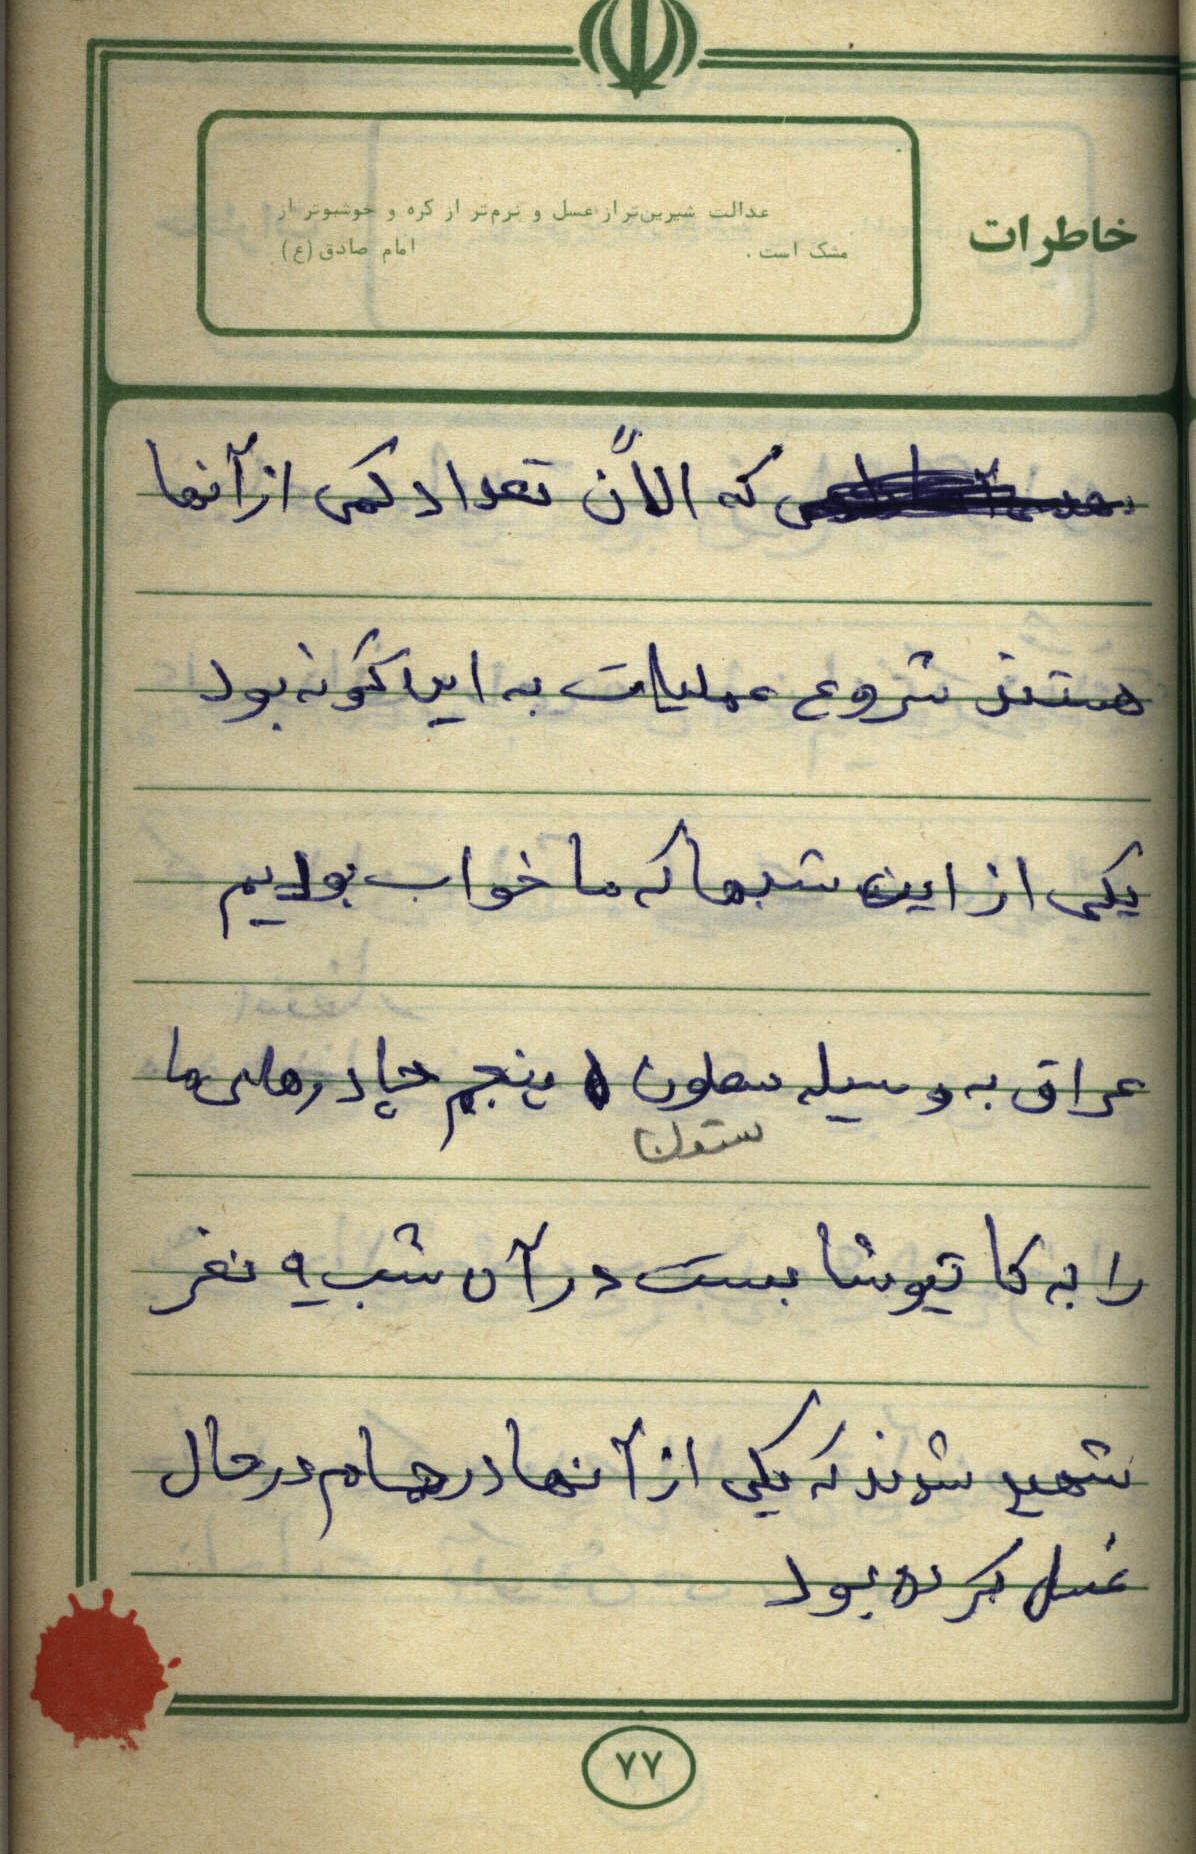 خاطرات
عدالت شیرین‌تر از عسل و نرم‌تر از کره و خوشبوتر از
مشک است . امام صادق (ع)
که الاًن تعداد کمی از آنها
هستند شروع عملیات به این گونه بود
یکی از این شبها که ما خواب بودیم
عراق به وسیله سطون پنجم چادرهای ما
ستون
را به کاتیوشا بست در آن شب ۹ نفر
شهید شدند که یکی از آنها در حمام در حال
غسل کردن بود
۷۷